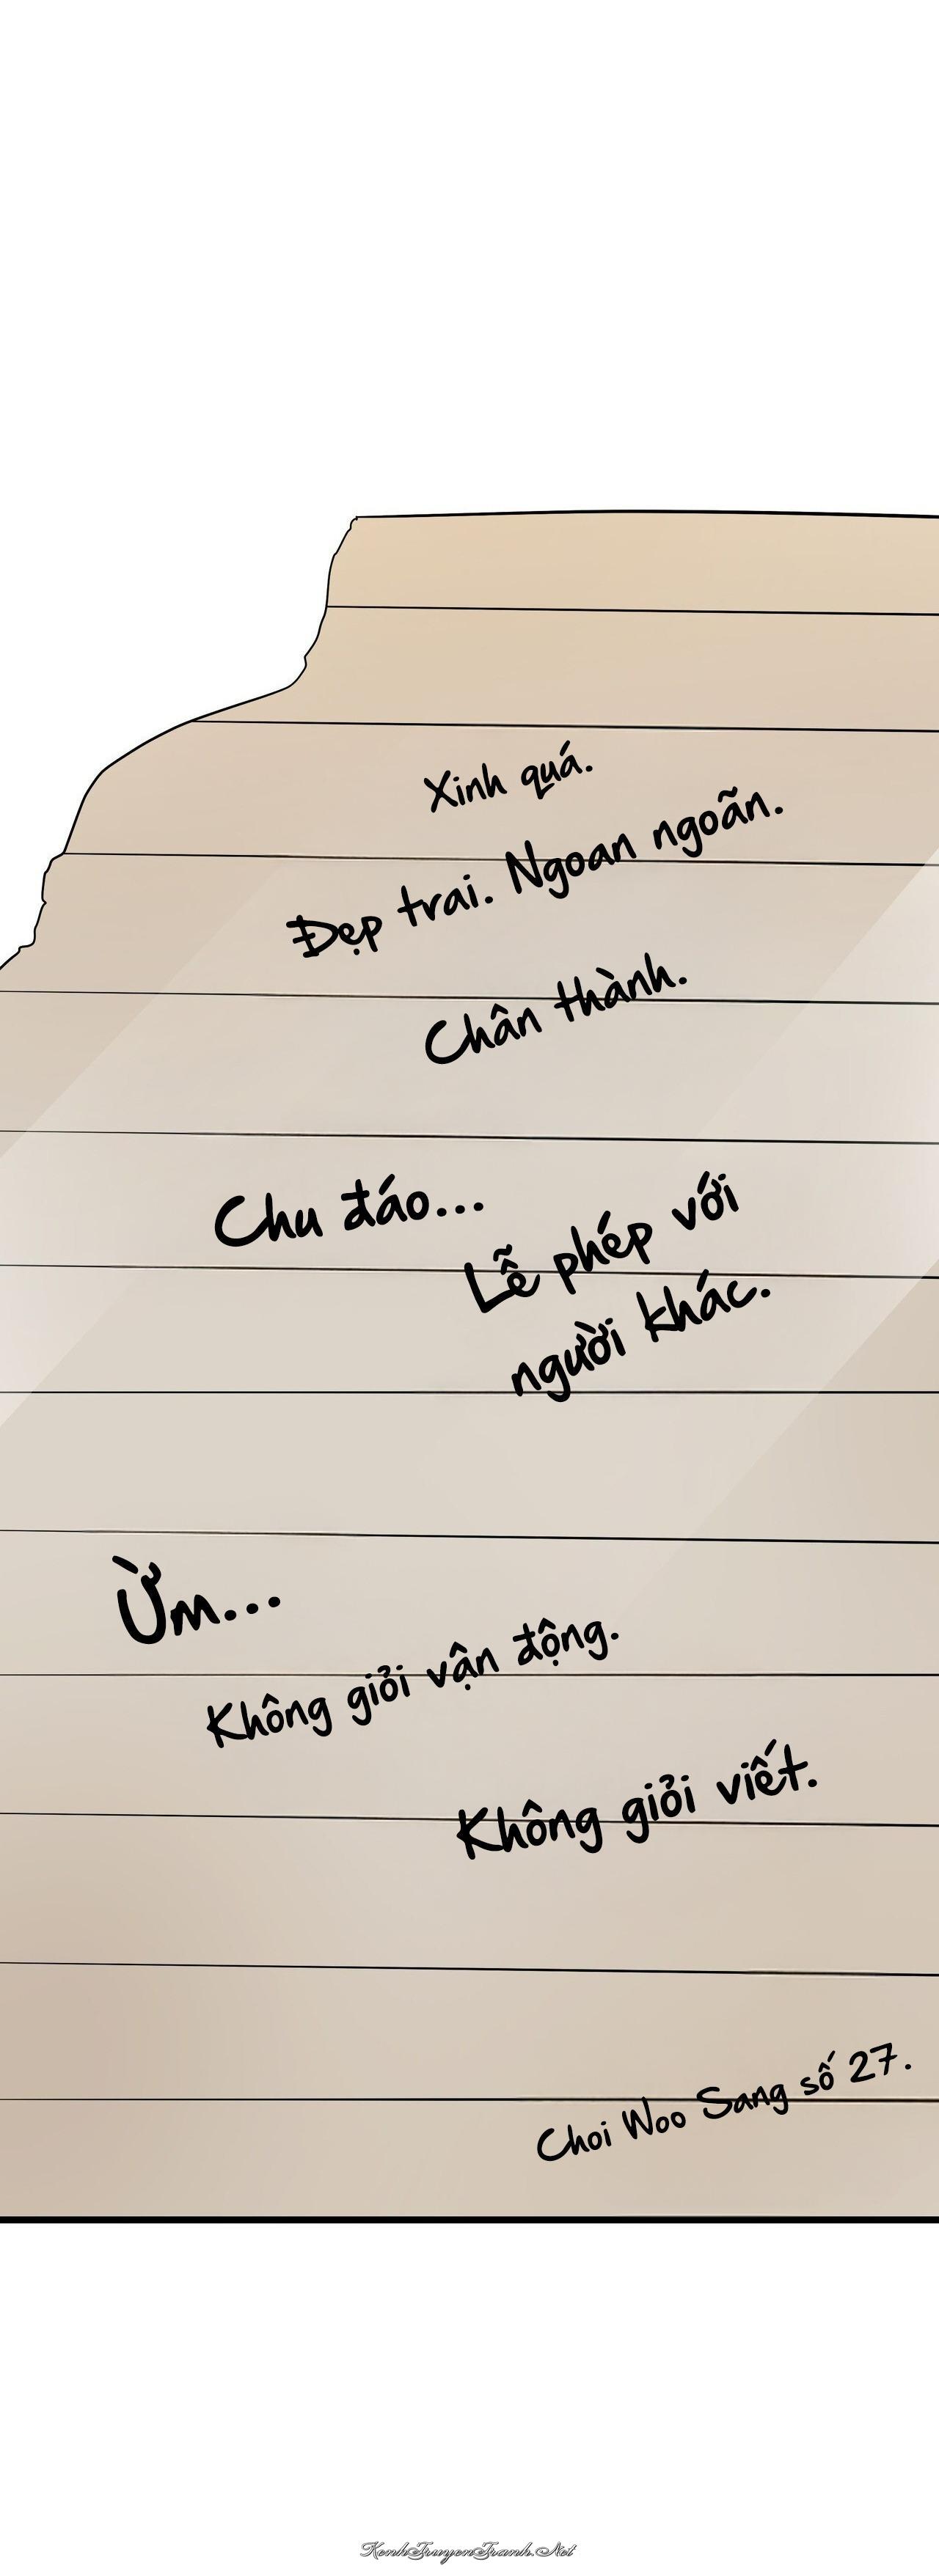 Xinh quá.
Đẹp trai. Ngoan ngoãn.
Chân thành.
Chu đáo...
Lễ phép với
người khác.
Ừm...
Không giỏi vận động.
Không giỏi viết.
Choi Woo Sang số 27.
KenhTruyenTranh.Net